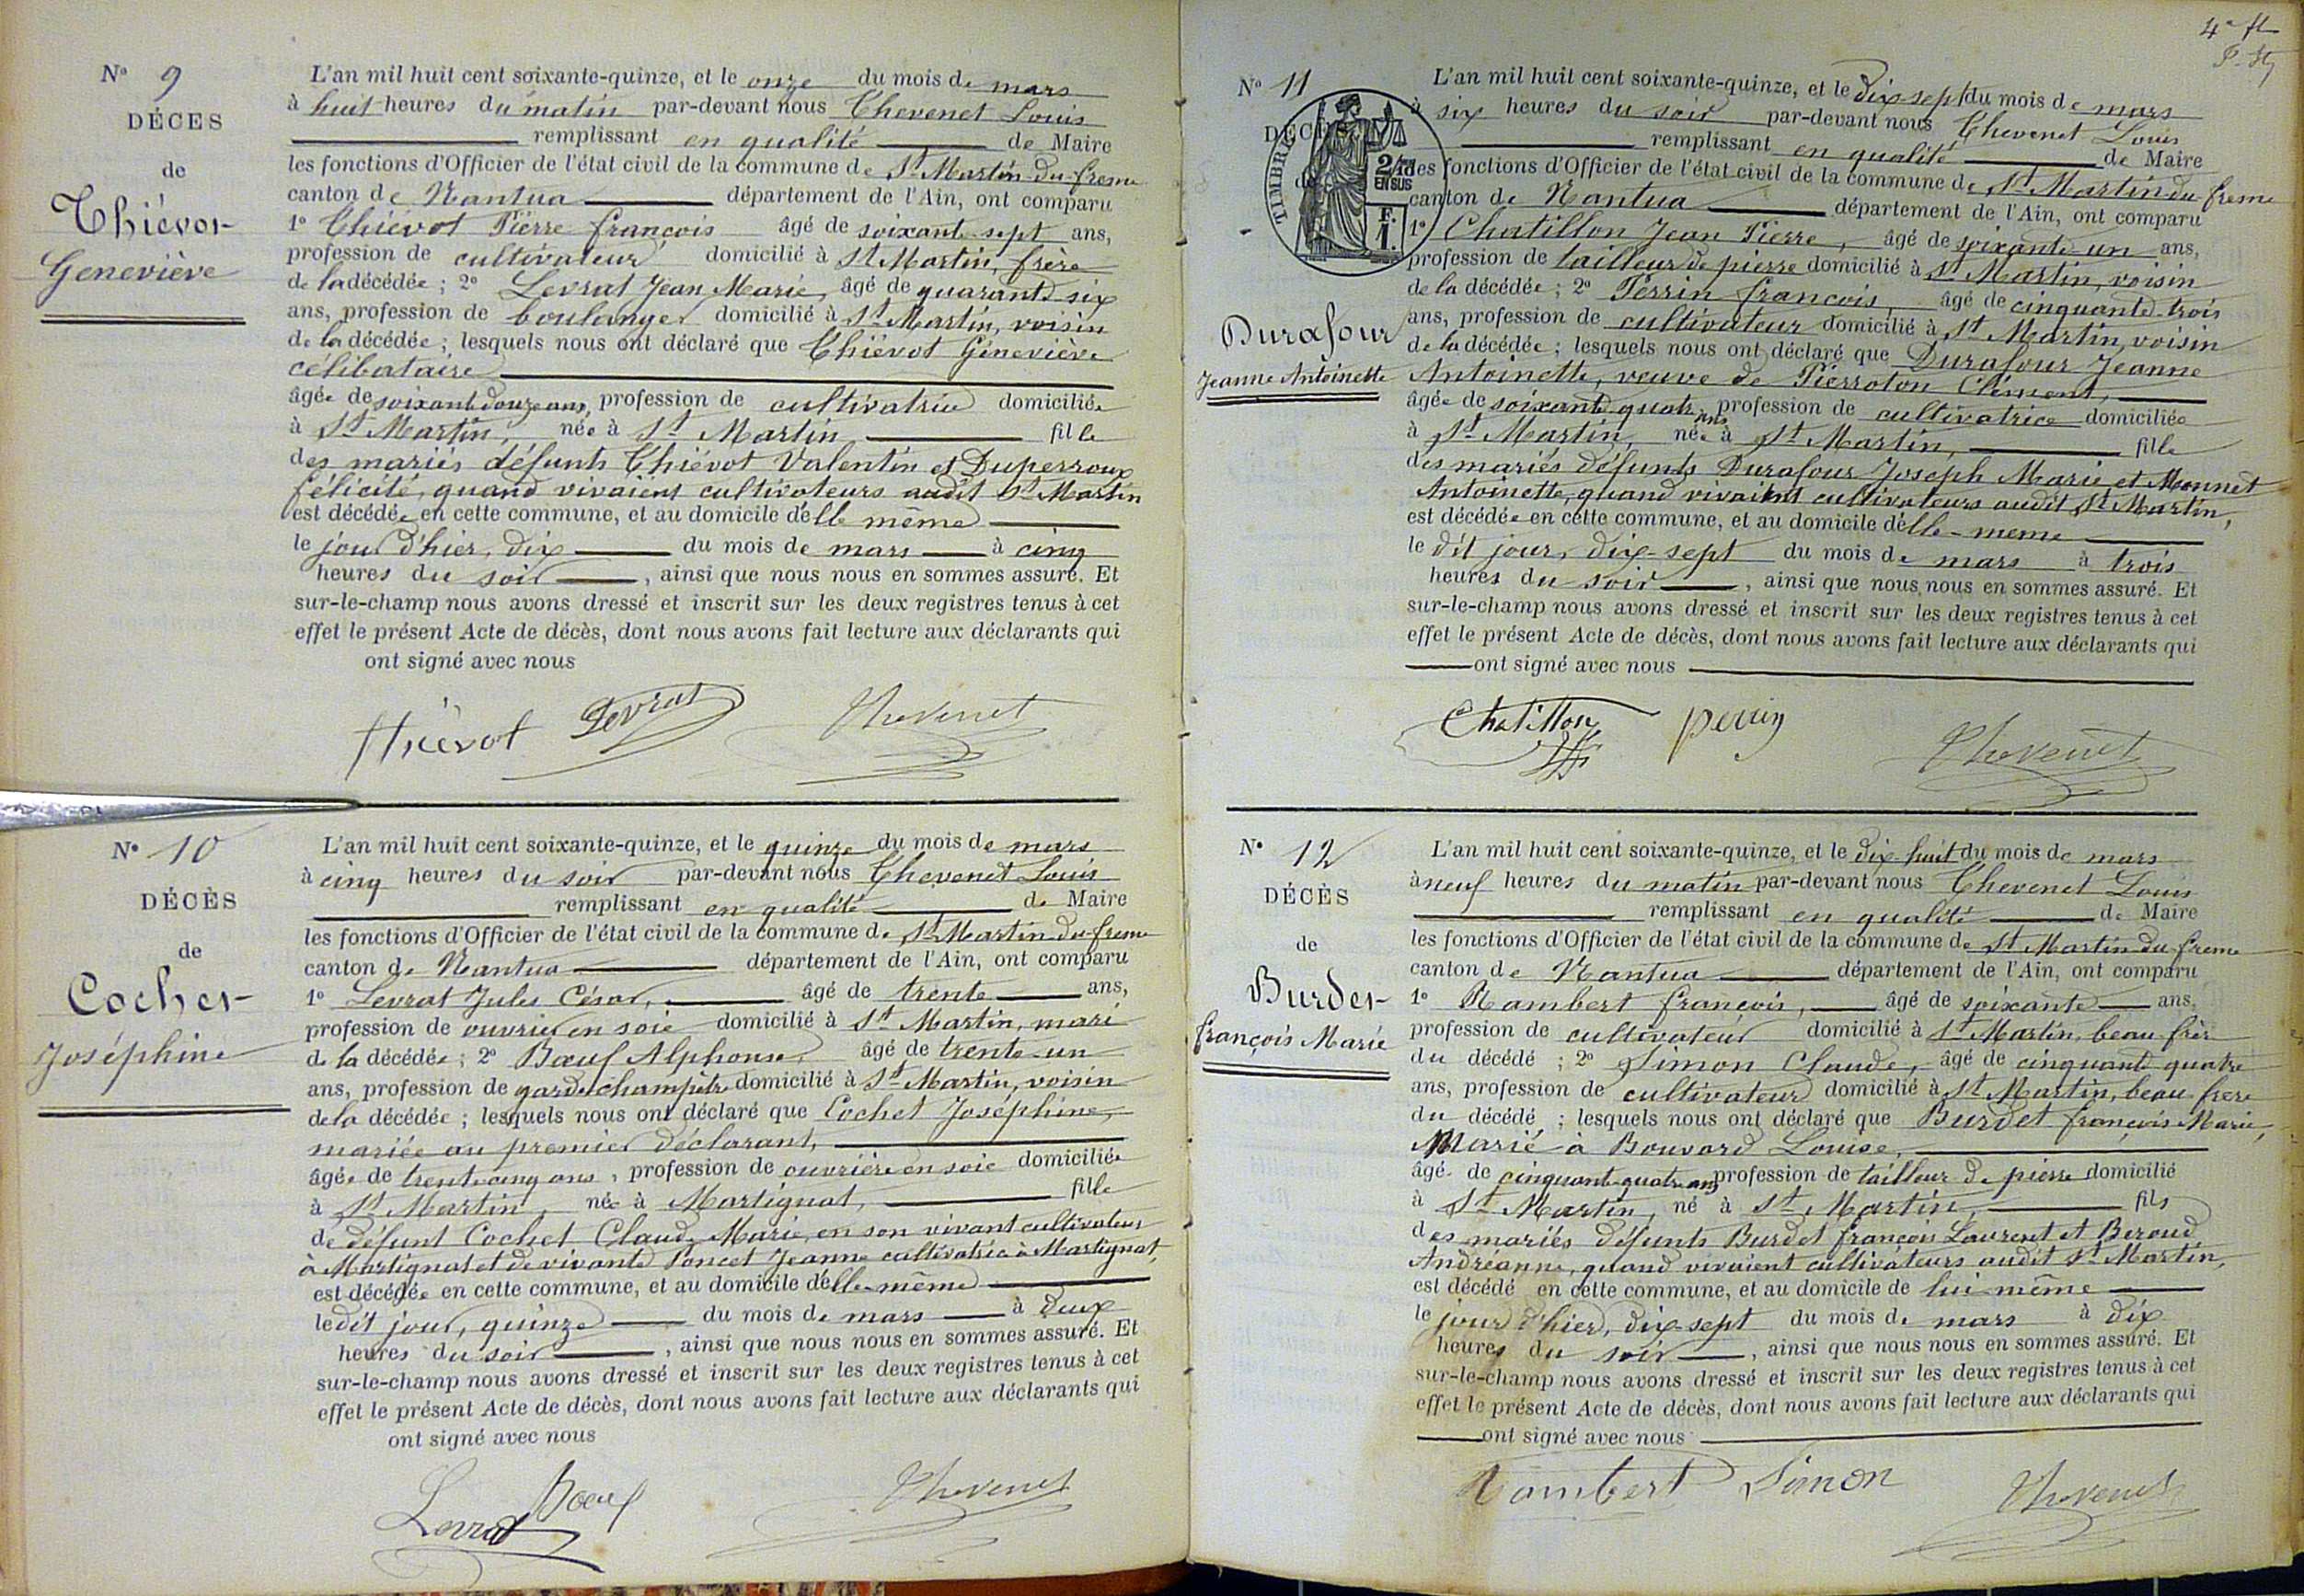 N° 9
DÉCES
de
Thiévot
Geneviève
L'an mil huit cent soixante-quinze, et le onze du mois de mars
à huit heures du matin par-devant nous Chevenet Louis
remplissant en qualité de Maire
les fonctions d'Officier de l'état civil de la commune de St Martin-du-fresne
canton de Nantua département de l'Ain, ont comparu
1° Thiévot Pierre françois âgé de soixante-sept ans,
profession de cultivateur domicilié à St Martin, frère
de la décédée ; 2° Levrat Jean Marie, âgé de quarante six
ans, profession de boulanger domicilié à St Martin, voisin
de la décédée ; lesquels nous ont déclaré que Thiévot Géneviève
célibataire
âgée de soixante douze ans, profession de cultivatrice domiciliée
à St Martin, née à St Martin fille
des mariés défunts Thiévot Valentin et Duperroux
félicité, quand vivaient cultivateurs audit St Martin
est décédée en cette commune, et au domicile d'elle même
le jour d'hier, dix du mois de mars à cinq
heures du soir , ainsi que nous nous en sommes assuré. Et
sur-le-champ nous avons dressé et inscrit sur les deux registres tenus à cet
effet le présent Acte de décès, dont nous avons fait lecture aux déclarants qui
ont signé avec nous
Thiévot Levrat Chevenet
N° 10
DÉCÈS
de
Cochet
Joséphine
L'an mil huit cent soixante-quinze, et le quinze du mois de mars
à cinq heures du soir par-devant nous Chevenet Louis
remplissant en qualité de Maire
les fonctions d'Officier de l'état civil de la commune de St Martin-du-fresne
canton de Nantua département de l'Ain, ont comparu
1° Levrat Jules César, âgé de trente ans,
profession de ouvrier en soie domicilié à St Martin, mari
de la décédée ; 2° Bœuf Alphonse, âgé de trente-un
ans, profession de garde champêtre domicilié à St Martin, voisin
de la décédée ; lesquels nous ont déclaré que Cochet Joséphine,
mariée au premier déclarant,
âgée de trente cinq ans, profession de ouvrière en soie domiciliée
à St Martin, née à Martignat, fille
de défunt Cochet Claude Marie, en son vivant cultivateur
à Martignat et de vivante Poncet Jeanne cultivatrice à Martignat,
est décédée en cette commune, et au domicile d'elle-même
le dit jour, quinze du mois de mars à deux
heures du soir , ainsi que nous nous en sommes assuré. Et
sur-le-champ nous avons dressé et inscrit sur les deux registres tenus à cet
effet le présent Acte de décès, dont nous avons fait lecture aux déclarants qui
ont signé avec nous
Levrat Boeuf Chevenet
4e ft
N° 11
DÉCÈS
de
TIMBRE
2/10
EN SUS
F.
1.
Durafour
Jeanne Antoinette
L'an mil huit cent soixante-quinze, et le dix sept du mois de mars
à six heures du soir par-devant nous Chevenet Louis
remplissant en qualité de Maire
les fonctions d'Officier de l'état civil de la commune de St Martin du fresne
canton de Nantua département de l'Ain, ont comparu
1° Chatillon Jean Pierre, âgé de soixante un ans,
profession de tailleur de pierre domicilié à St Martin, voisin
de la décédée ; 2° Perrin françois, âgé de cinquante-trois
ans, profession de cultivateur domicilié à St Martin, voisin
de la décédée ; lesquels nous ont déclaré que Durafour Jeanne
Antoinette, veuve de Pierroton Clément,
âgée de soixante quatre ans, profession de cultivatrice domiciliée
à St Martin, née à St Martin, fille
des mariés défunts Durafour Joseph Marie et Monnet
Antoinette, quand vivaient cultivateurs audit St Martin,
est décédée en cette commune, et au domicile d'elle-meme
le dit jour, dix-sept du mois de mars à trois
heures du soir , ainsi que nous nous en sommes assuré. Et
sur-le-champ nous avons dressé et inscrit sur les deux registres tenus à cet
effet le présent Acte de décès, dont nous avons fait lecture aux déclarants qui
ont signé avec nous
Chatillon perrin Chevenet
N° 12
DÉCÈS
de
Burdet
françois Marie
L'an mil huit cent soixante-quinze, et le dix-huit du mois de mars
à neuf heures du matin par-devant nous Chevenet Louis
remplissant en qualité de Maire
les fonctions d'Officier de l'état civil de la commune de St Martin du fresne
canton de Nantua département de l'Ain, ont comparu
1° Rambert françois, âgé de soixante ans,
profession de cultivateur domicilié à St Martin, beau frère
du décédé ; 2° Simon Claude, âgé de cinquante quatre
ans, profession de cultivateur domicilié à St Martin, beau frere
du décédé ; lesquels nous ont déclaré que Burdet françois Marie,
Marié à Bouvard Louise,
âgé de cinquante-quatre ans profession de tailleur de pierre domicilié
à St Martin, né à St Martin, fils
des mariés défunts Burdet françois Laurent et Beroud
Andréanne, quand vivaient cultivateurs audit St Martin,
est décédé en cette commune, et au domicile de lui même
le jour d'hier, dix-sept du mois de mars à dix
heures du soir , ainsi que nous nous en sommes assuré. Et
sur-le-champ nous avons dressé et inscrit sur les deux registres tenus à cet
effet le présent Acte de décès, dont nous avons fait lecture aux déclarants qui
ont signé avec nous
Rambert Simon Chevenet